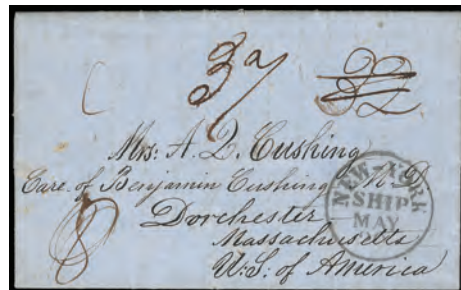 37 32
Mrs: A. Q. Cushing
Care of Benjamin Cushing M D
Dorchester
Massachusetts
U: S: of America
8
NEW-YORK
SHIP
MAY